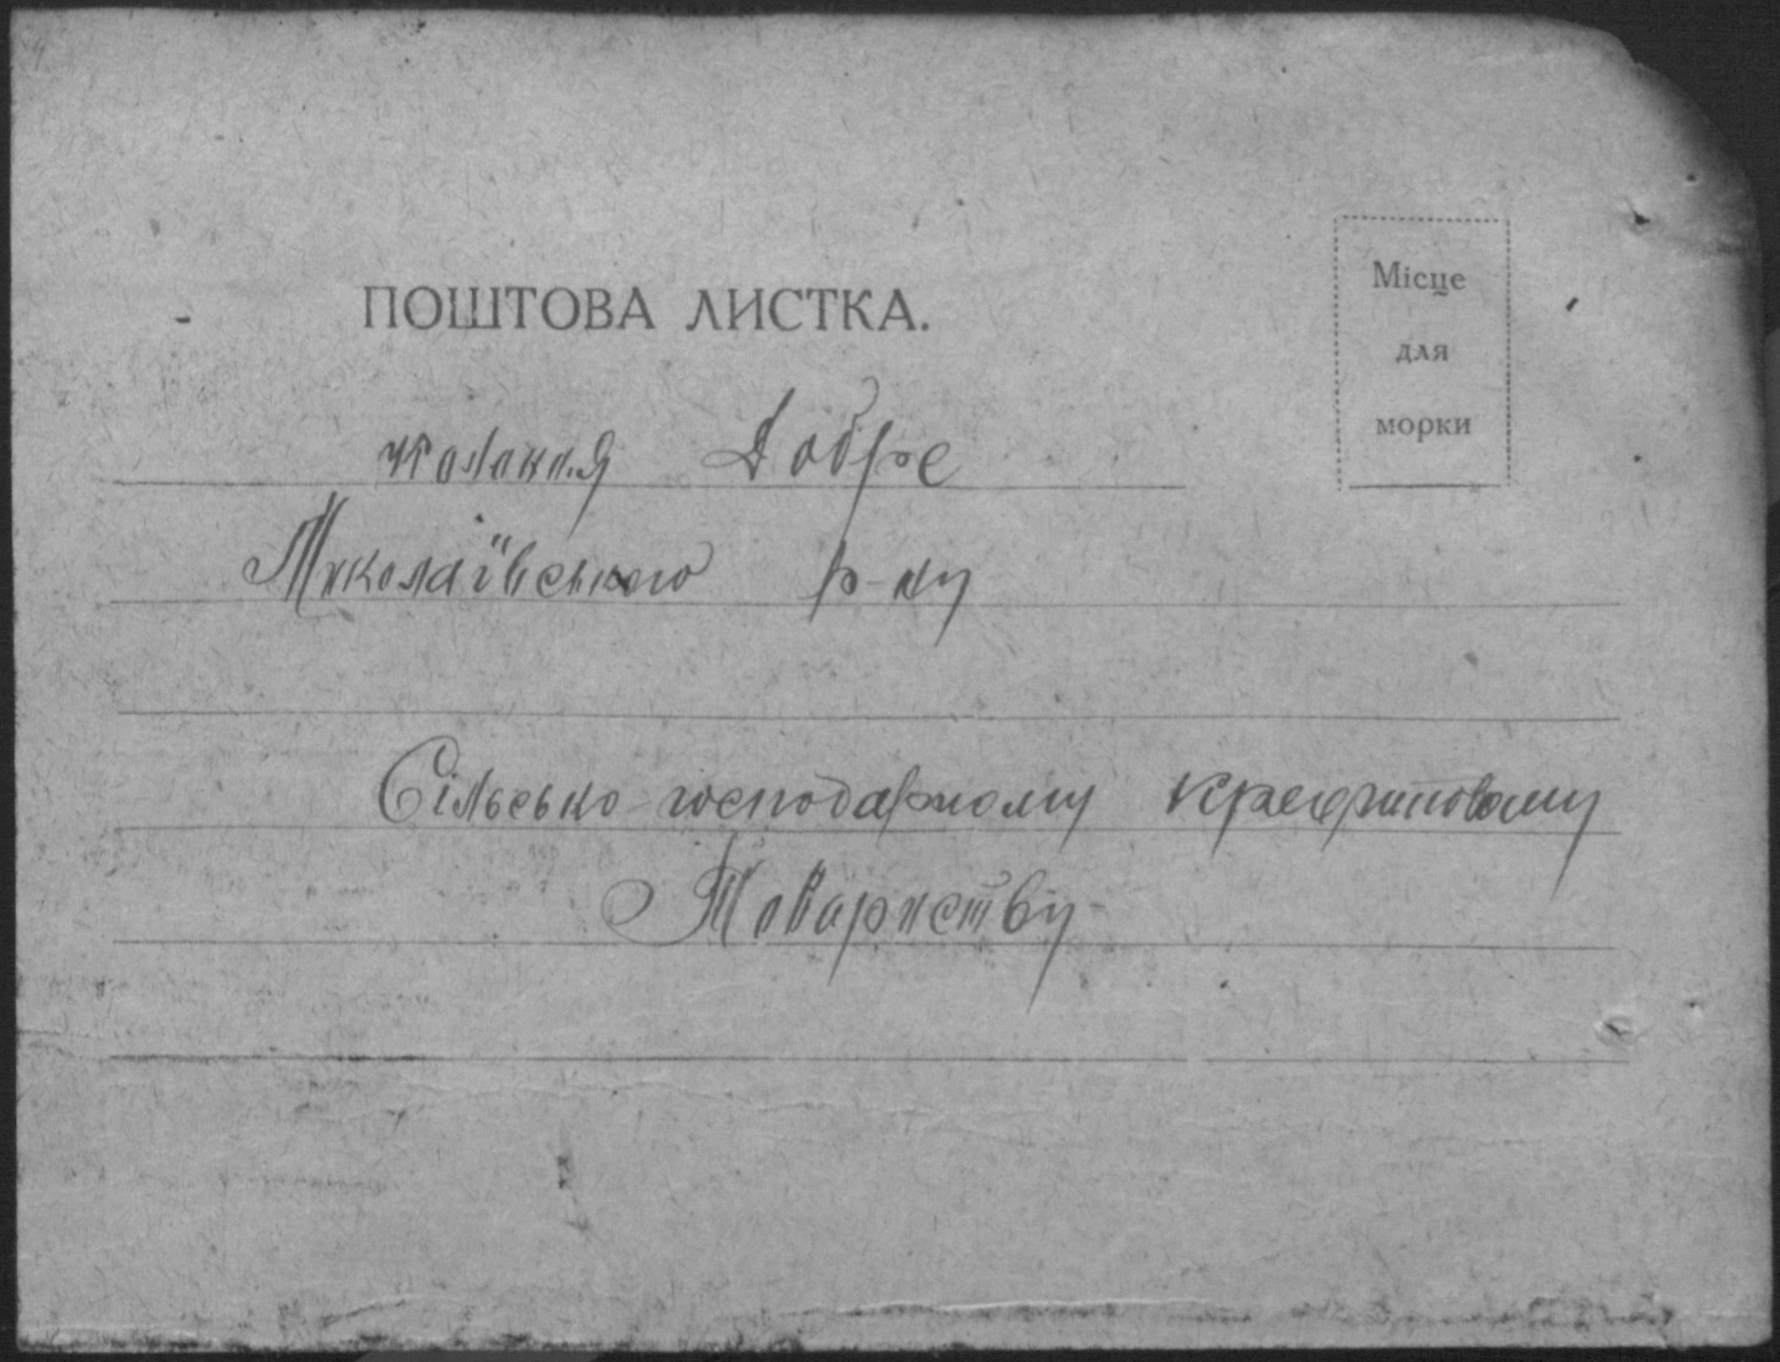 ПОШТОВА ЛИСТКА.
Місце
для
морки
колония Добре
Миколаївського р-ну
Сільсько-господарному кредитовому
Товариству